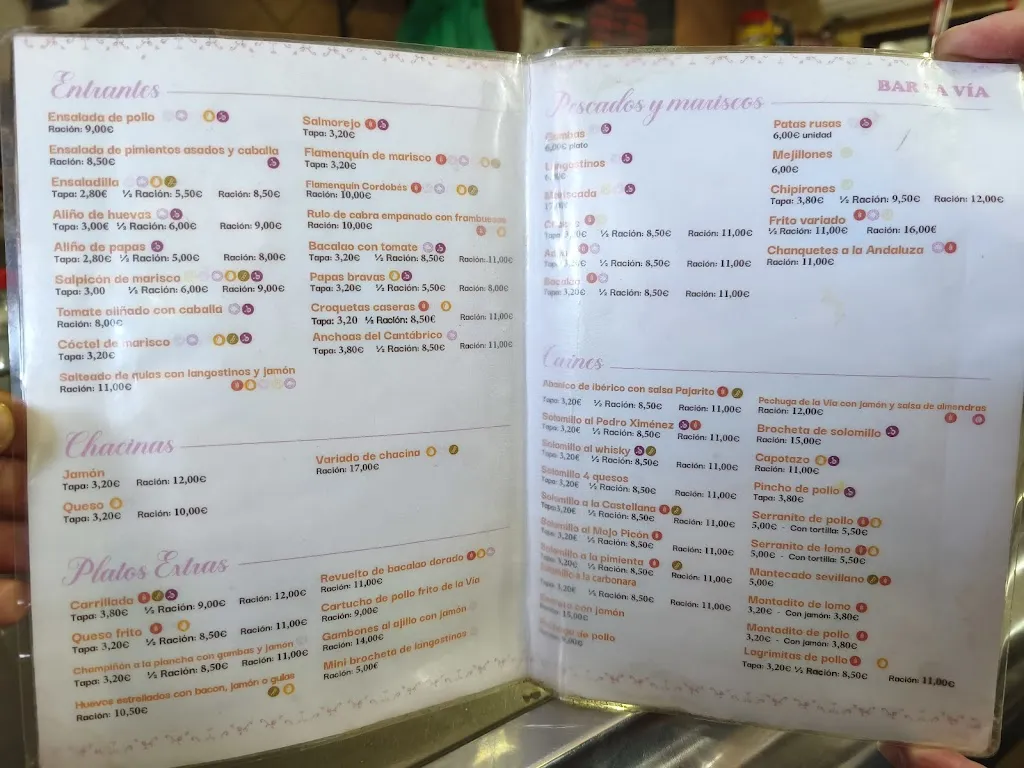 Entrantes
Ensalada de pollo
Ración: 9,00€
Ensalada de pimientos asados y caballa
Ración: 8,50€
Ensaladilla
Tapa: 2,80€ ½ Ración: 5,50€ Ración: 8,50€
Aliño de huevas
Tapa: 3,00€ ½ Ración: 6,00€ Ración: 9,00€
Aliño de papas
Tapa: 2,80€ ½ Ración: 5,00€ Ración: 8,00€
Salpicón de marisco
Tapa: 3,00 ½ Ración: 6,00€ Ración: 9,00€
Tomate aliñado con caballa
Ración: 8,00€
Cóctel de marisco
Tapa: 3,20€
Salteado de gulas con langostinos y jamón
Ración: 11,00€
Salmorejo
Tapa: 3,20€
Flamenquín de marisco
Tapa: 3,20€
Flamenquín Cordobés
Ración: 10,00€
Rulo de cabra empanado con frambuesas
Ración: 10,00€
Bacalao con tomate
Tapa: 3,20€ ½ Ración: 8,50€ Ración: 11,00€
Papas bravas
Tapa: 3,20€ ½ Ración: 5,50€ Ración: 8,00€
Croquetas caseras
Tapa: 3,20 ½ Ración: 8,50€ Ración: 11,00€
Anchoas del Cantábrico
Tapa: 3,80€ ½ Ración: 8,50€ Ración: 11,00€
Chacinas
Jamón
Tapa: 3,20€ Ración: 12,00€
Queso
Tapa: 3,20€ Ración: 10,00€
Variado de chacina
Ración: 17,00€
Platos Extras
Carrillada
Tapa: 3,80€ ½ Ración: 9,00€ Ración: 12,00€
Queso frito
Tapa: 3,20€ ½ Ración: 8,50€ Ración: 11,00€
Champiñón a la plancha con gambas y jamón
Tapa: 3,20€ ½ Ración: 8,50€ Ración: 11,00€
Huevos estrellados con bacon, jamón o gulas
Ración: 10,50€
Revuelto de bacalao dorado
Ración: 11,00€
Cartucho de pollo frito de la Vía
Ración: 9,00€
Gambones al ajillo con jamón
Ración: 14,00€
Mini brocheta de langostinos
Ración: 5,00€
BAR LA VÍA
Pescados y mariscos
Gambas
6,00€ plato
Langostinos
Mariscada
½ Ración: 8,50€ Ración: 11,00€
½ Ración: 8,50€ Ración: 11,00€
Bacalao
Tapa: 3,20€ ½ Ración: 8,50€ Ración: 11,00€
Patas rusas
6,00€ unidad
Mejillones
6,00€
Chipirones
Tapa: 3,80€ ½ Ración: 9,50€ Ración: 12,00€
Frito variado
½ Ración: 11,00€ Ración: 16,00€
Chanquetes a la Andaluza
Ración: 11,00€
Carnes
Abanico de ibérico con salsa Pajarito
Tapa: 3,20€ ½ Ración: 8,50€ Ración: 11,00€
Solomillo al Pedro Ximénez
Tapa: 3,20€ ½ Ración: 8,50€ Ración: 11,00€
Solomillo al whisky
Tapa: 3,20€ ½ Ración: 8,50€ Ración: 11,00€
Solomillo 4 quesos
Tapa: 3,20€ ½ Ración: 8,50€ Ración: 11,00€
Solomillo a la Castellana
Tapa: 3,20€ ½ Ración: 8,50€ Ración: 11,00€
Solomillo al Mojo Picón
Tapa: 3,20€ ½ Ración: 8,50€ Ración: 11,00€
Solomillo a la pimienta
Tapa: 3,20€ ½ Ración: 8,50€ Ración: 11,00€
Solomillo a la carbonara
Tapa: 3,20€ ½ Ración: 8,50€ Ración: 11,00€
con jamón
Ración: 15,00€
de pollo
Pechuga de la Vía con jamón y salsa de almendras
Ración: 12,00€
Brocheta de solomillo
Ración: 15,00€
Capotazo
Ración: 11,00€
Pincho de pollo
Tapa: 3,80€
Serranito de pollo
5,00€ - Con tortilla: 5,50€
Serranito de lomo
5,00€ - Con tortilla: 5,50€
Mantecado sevillano
5,00€
Montadito de lomo
3,20€ - Con jamón: 3,80€
Montadito de pollo
3,20€ - Con jamón: 3,80€
Lagrimitas de pollo
Tapa: 3,20€ ½ Ración: 8,50€ Ración: 11,00€